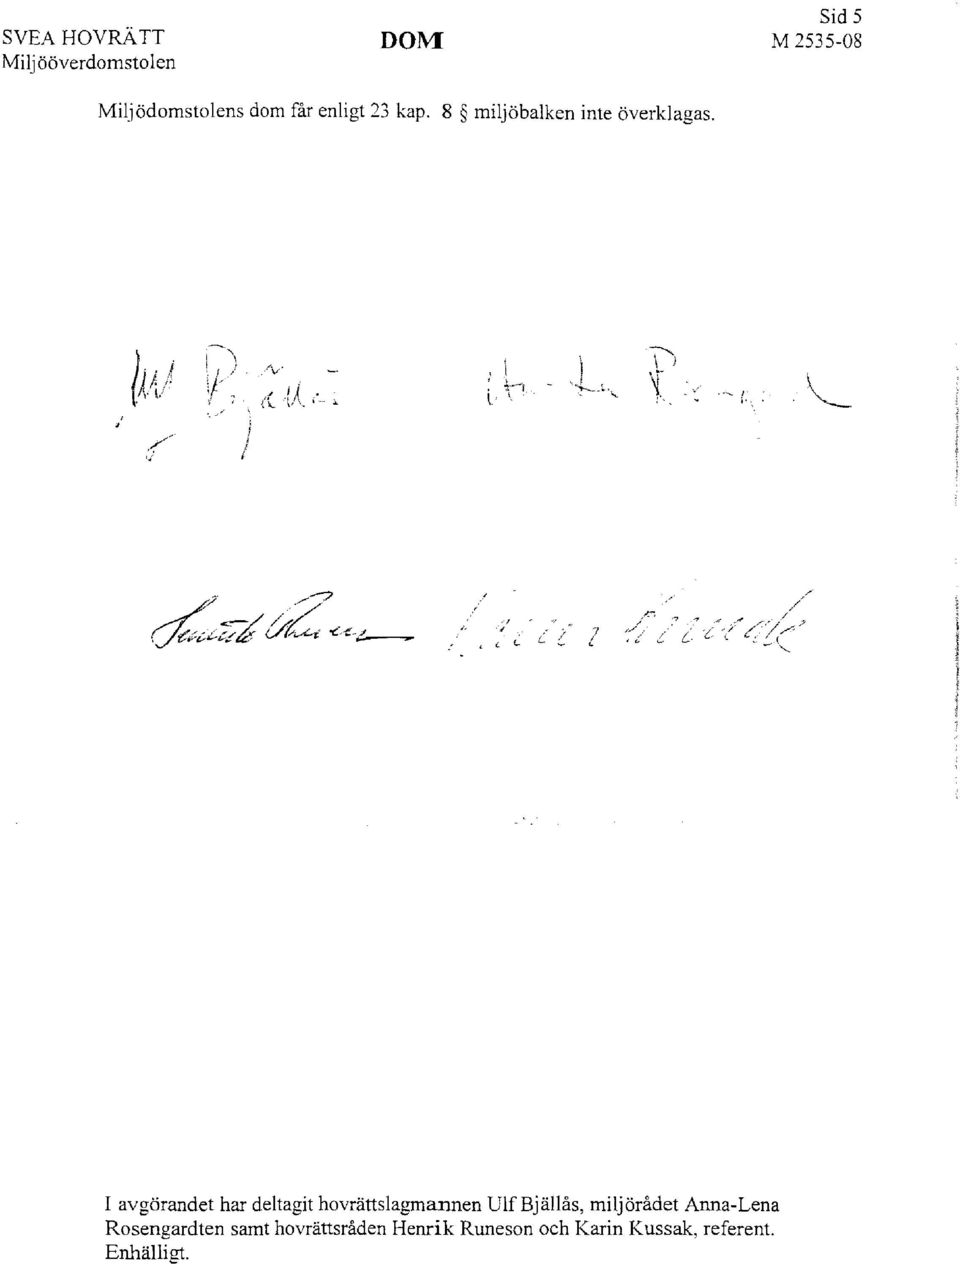 SVEA HOVRÄTT
Miljööverdomstolen
DOM
Sid 5
M 2535-08
Miljödomstolens dom får enligt 23 kap. 8 § miljöbalken inte överklagas.
Ulf Bjällås
Henrik Runeson
Karin Kussak
I avgörandet har deltagit hovrättslagmannen Ulf Bjällås, miljörådet Anna-Lena
Rosengardten samt hovrättsråden Henrik Runeson och Karin Kussak, referent.
Enhälligt.